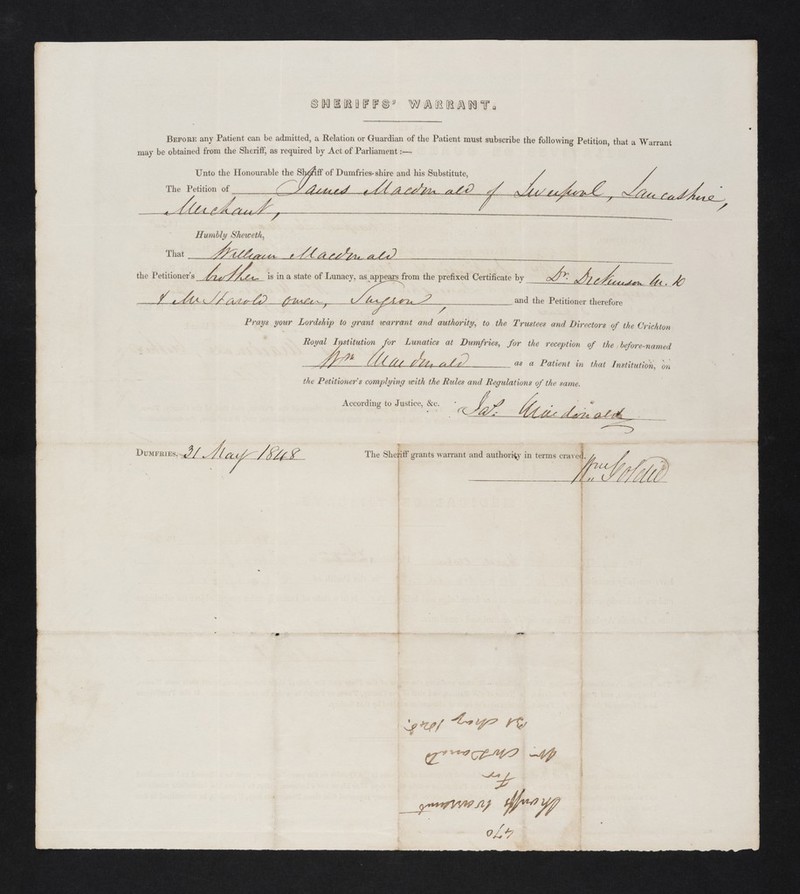 SHERIFFS' WARRANT.
BEFORE any Patient can be admitted, a Relation or Guardian of the Patient must subscribe the following Petition, that a Warrant
may be obtained from the Sheriff, as required by Act of Parliament:—
Unto the Honourable the Sheriff of Dumfries-shire and his Substitute,
The Petition of James Macdonald of Liverpool, Lancashire,
Merchant,
Humbly Sheweth,
That William Macdonald
the Petitioner's brother is in a state of Lunacy, as appears from the prefixed Certificate by Dr. Dickinson M.
& Mr Harold Owen, Surgeon, and the Petitioner therefore
Prays your Lordship to grant warrant and authority, to the Trustees and Directors of the Crichton
Royal Institution for Lunatics at Dumfries, for the reception of the before-named
Wm Macdonald as a Patient in that Institution, on
the Petitioner's complying with the Rules and Regulations of the same.
According to Justice, &c. Jas. Macdonald
DUMFRIES, 31 May 1848 The Sheriff grants warrant and authority in terms craved.
Wm Goldie
470
Sheriffs Warrant
For
Wm McDonald
31 May 1848.